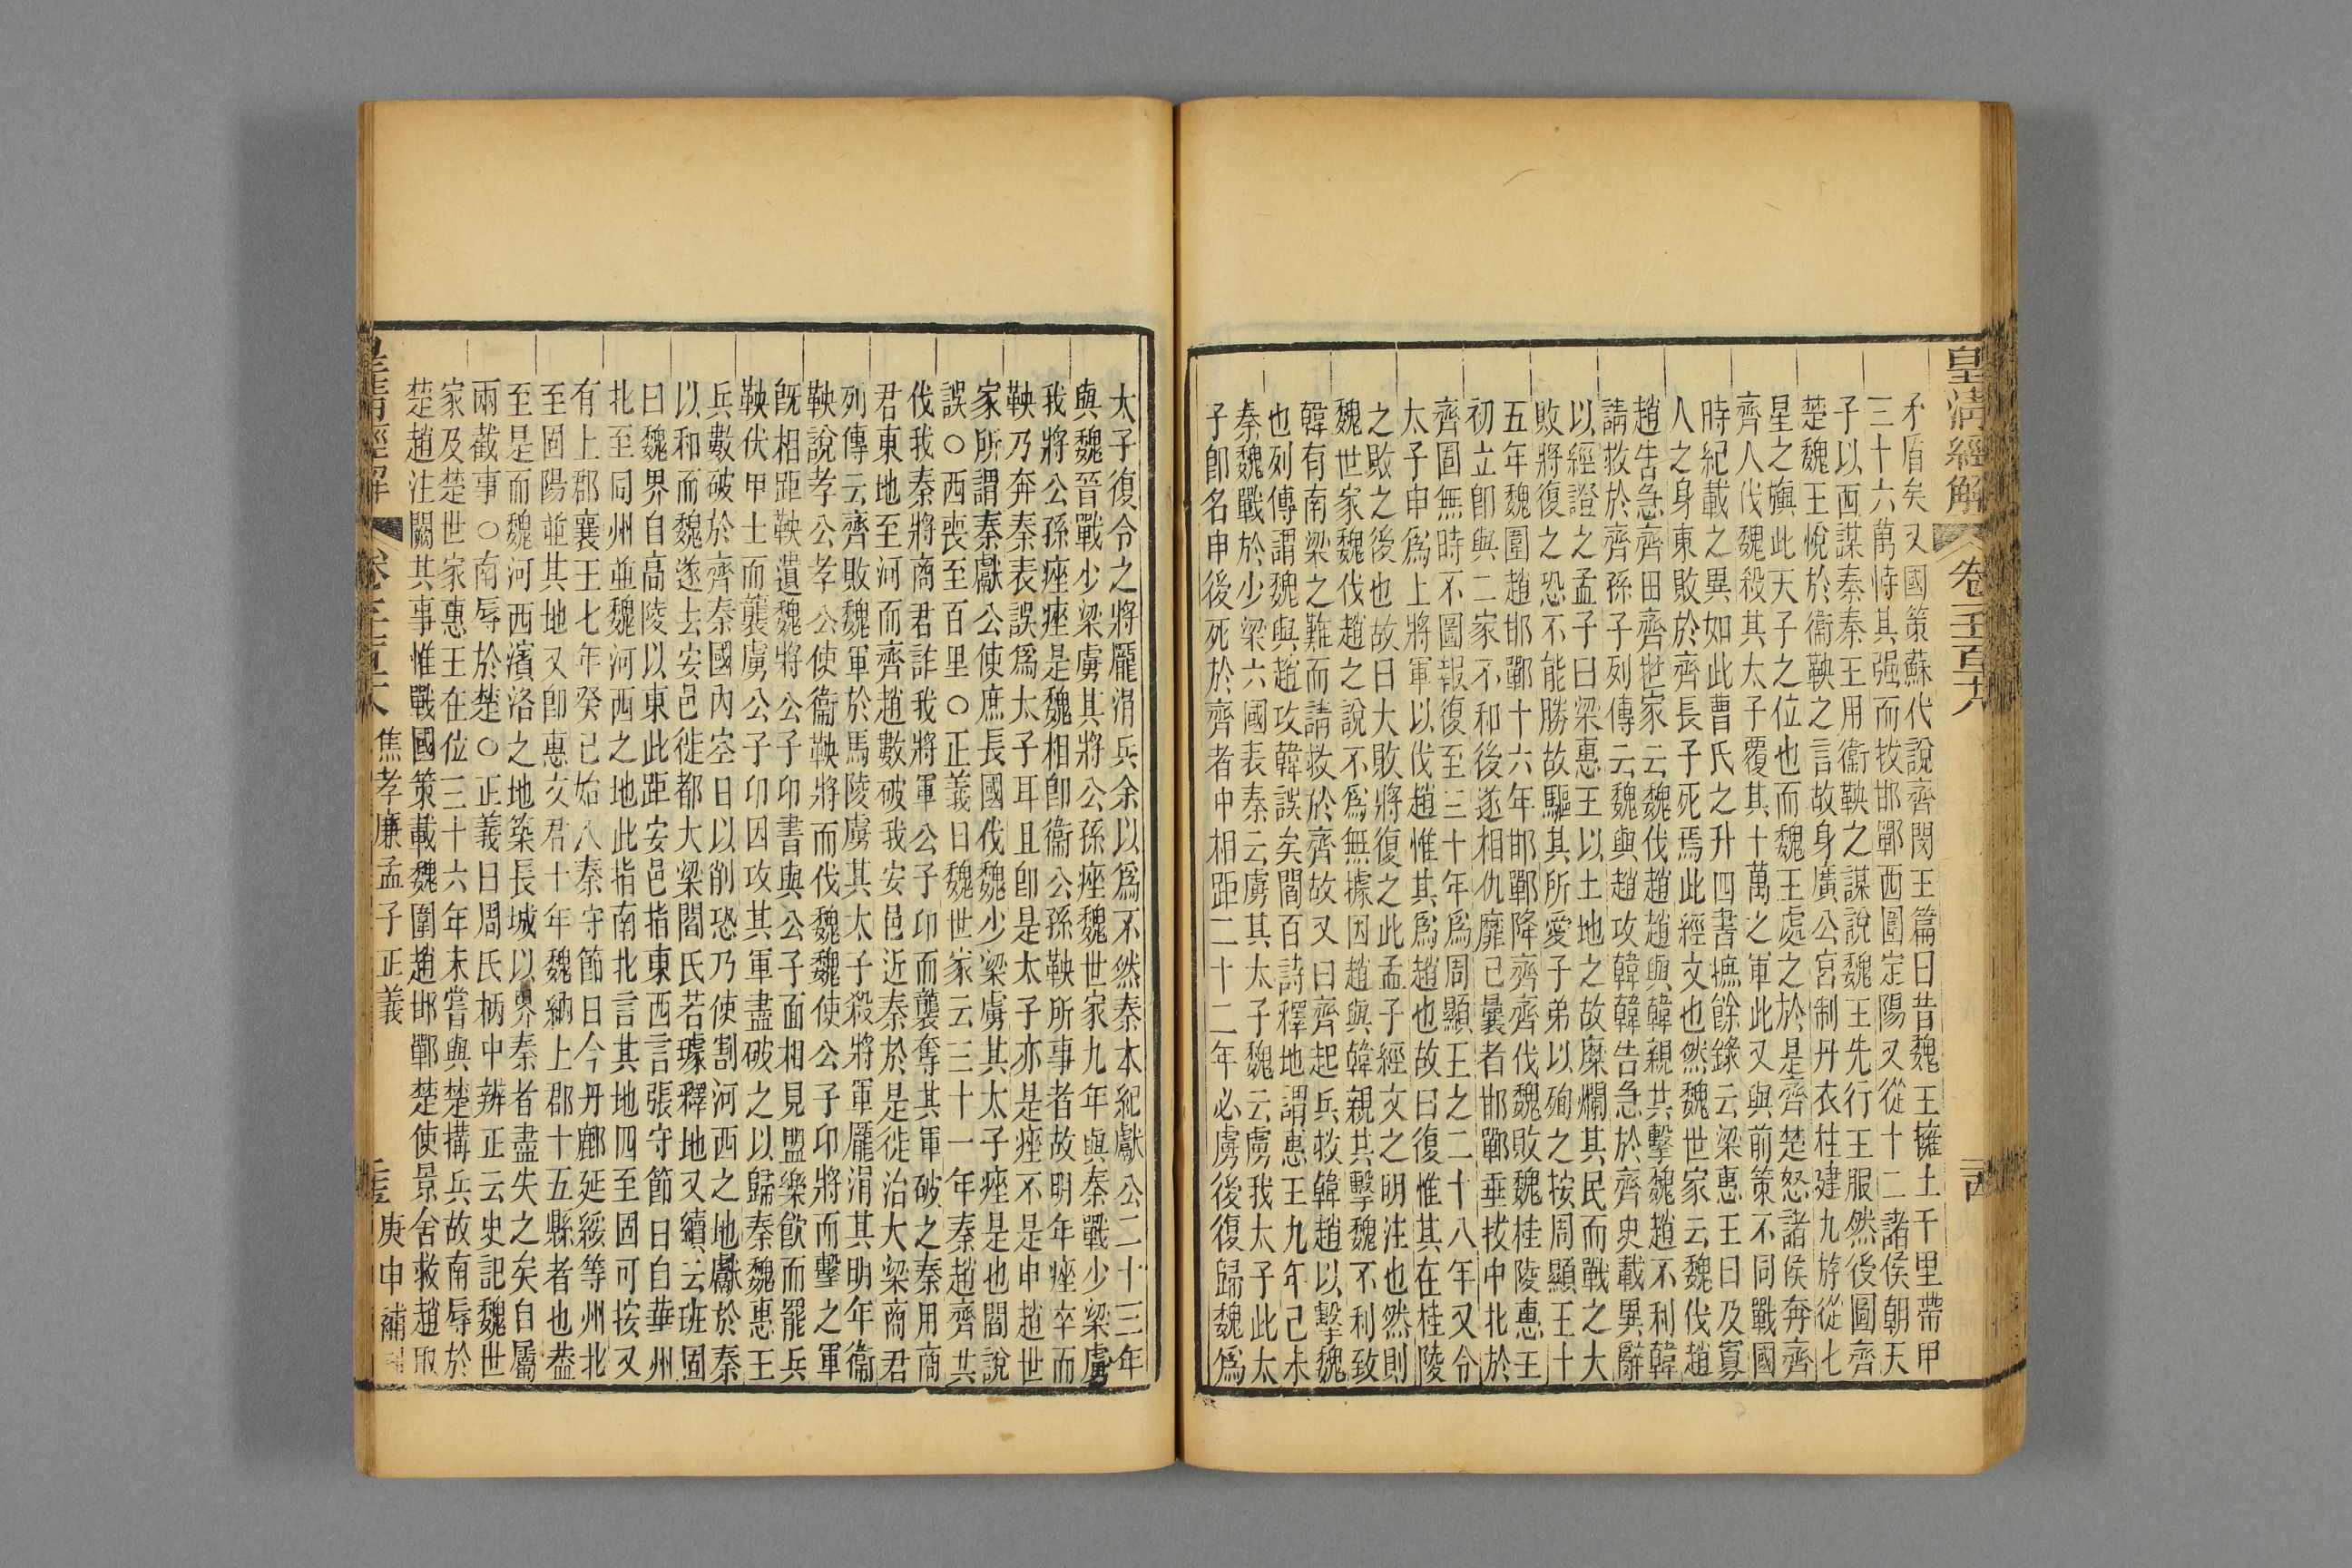 皇清經解
矛盾矣又國策蘇代說齊閔王篇曰昔魏王擁土千里帶甲
三十六萬恃其强而拔邯鄲西圍定陽又從十二諸侯朝天
子以西謀秦秦王用衞鞅之謀說魏王先行王服然後圖齊
楚魏王悅於衞鞅之言故身廣公宮制丹衣柱建九斿從七
星之旟此天子之位也而魏王處之於是齊楚怒諸侯奔齊
齊人伐魏殺其太子覆其十萬之軍此又與前策不同戰國
時紀載之異如此曹氏之升四書摭餘錄云梁惠王曰及寡
人之身東敗於齊長子死焉此經文也然魏世家云魏伐趙
趙告急齊田齊世家云魏伐趙趙與韓親共擊魏趙不利韓
請救於齊孫子列傳云魏與趙攻韓韓告急於齊史載異辭
以經證之孟子曰梁惠王以土地之故糜爛其民而戰之大
敗將復之恐不能勝故驅其所愛子弟以殉之按周顯王十
五年魏圍趙邯鄲十六年邯鄲降齊齊伐魏敗魏桂陵惠王
初立卽與二家不和後遂相仇靡已曩者邯鄲垂拔中北於
齊固無時不圖報復至三十年爲周顯王之二十八年又令
太子申爲上將軍以伐趙惟其爲趙也故曰復惟其在桂陵
之敗之後也故曰大敗將復之此孟子經文之明注也然則
魏世家魏伐趙之說不爲無據因趙與韓親共擊魏不利致
韓有南梁之難而請救於齊故又曰齊起兵救韓趙以擊魏
也列傳謂魏與趙攻韓誤矣閻百詩釋地謂惠王九年己未
秦魏戰於少梁六國表秦云虜其太子魏云虜我太子此太
子卽名申後死於齊者申相距二十二年必虜後復歸魏爲
太子復令之將龐涓兵余以爲不然秦本紀獻公二十三年
與魏晉戰少梁虜其將公孫痤魏世家九年與秦戰少梁虜
我將公孫痤痤是魏相卽衞公孫鞅所事者故明年痤卒而
鞅乃奔秦表誤爲太子耳且卽是太子亦是痤不是申趙世
家所謂秦獻公使庶長國伐魏少梁虜其太子痤是也閻說
誤○西喪至百里○正義曰魏世家云三十一年秦趙齊共
伐我秦將商君詐我將軍公子卬而襲奪其軍破之秦用商
君東地至河而齊趙數破我安邑近秦於是徙治大梁商君
列傳云齊敗魏軍於馬陵虜其太子殺將軍龐涓其明年衞
鞅說孝公孝公使衞鞅將而伐魏魏使公子卬將而擊之軍
旣相距鞅遺魏將公子卬書與公子面相見盟樂飮而罷兵
鞅伏甲士而襲虜公子卬因攻其軍盡破之以歸秦魏惠王
兵數破於齊秦國內空日以削恐乃使割河西之地獻於秦
以和而魏遂去安邑徙都大梁閻氏若璩釋地又續云班固
曰魏界自高陵以東此距安邑指東西言張守節曰自華州
北至同州並魏河西之地此指南北言其地四至固可按又
有上郡襄王七年癸巳始入秦守節曰今丹鄜延綏等州北
至固陽並其地又卽惠文君十年魏納上郡十五縣者也葢
至是而魏河西濱洛之地築長城以界秦者盡失之矣自屬
兩截事○南辱於楚○正義曰周氏柄中辨正云史記魏世
家及楚世家惠王在位三十六年末嘗與楚搆兵故南辱於
楚趙注闕其事惟戰國策載魏圍趙邯鄲楚使景舍救趙取
焦孝廉孟子正義
庚申補刊